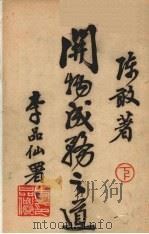 陈敢著
開物成務之道
下
李品仙署